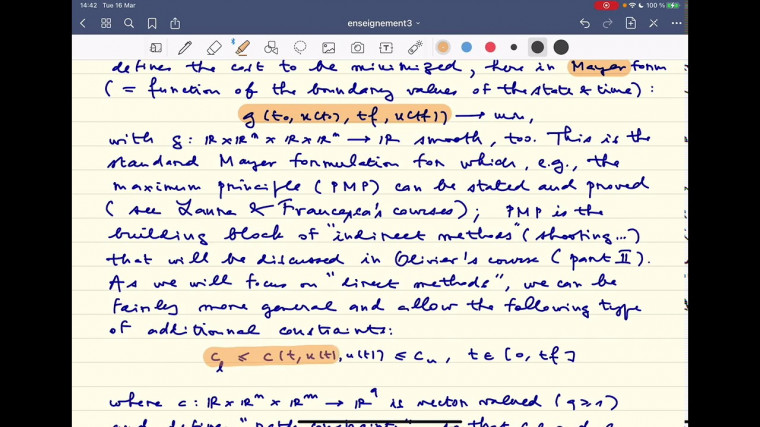 14:42 Tue 16 Mar
100%
enseignement3
defines the cost to be minimized, here in Mayer form
(= function of the boundary values of the state & time) :
g(t0, x(t0), tf, x(tf)) → min,
with g : R × R^n × R × R^n → R smooth, too. This is the
standard Mayer formulation for which, e.g., the
maximum principle (PMP) can be stated and proved
(see Laura & Francesca's courses) ; PMP is the
building block of "indirect methods" (shooting...)
that will be discussed in Olivier's course (part II).
As we will focus on "direct methods", we can be
fairly more general and allow the following type
of additionnal constraints:
c_l ≤ c(t, x(t), u(t)) ≤ c_u, t ∈ [0, tf]
where c : R × R^n × R^m → R^q is vector valued (q ≥ 1)
and defines "path constraints"